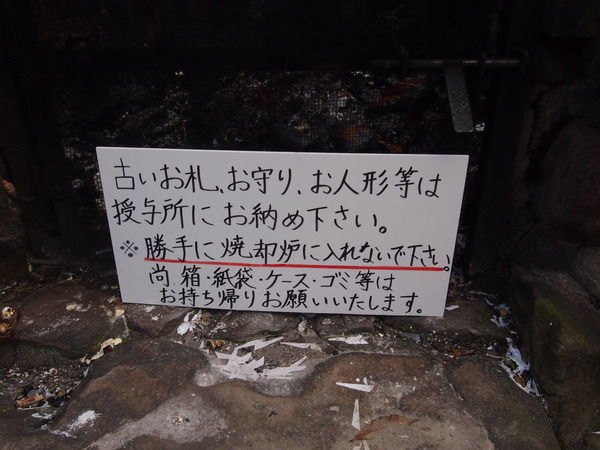 古いお札、お守り、お人形等は
授与所にお納め下さい。
※勝手に焼却炉に入れないで下さい。
尚箱・紙袋・ケース・ゴミ等は
お持ち帰りお願いいたします。